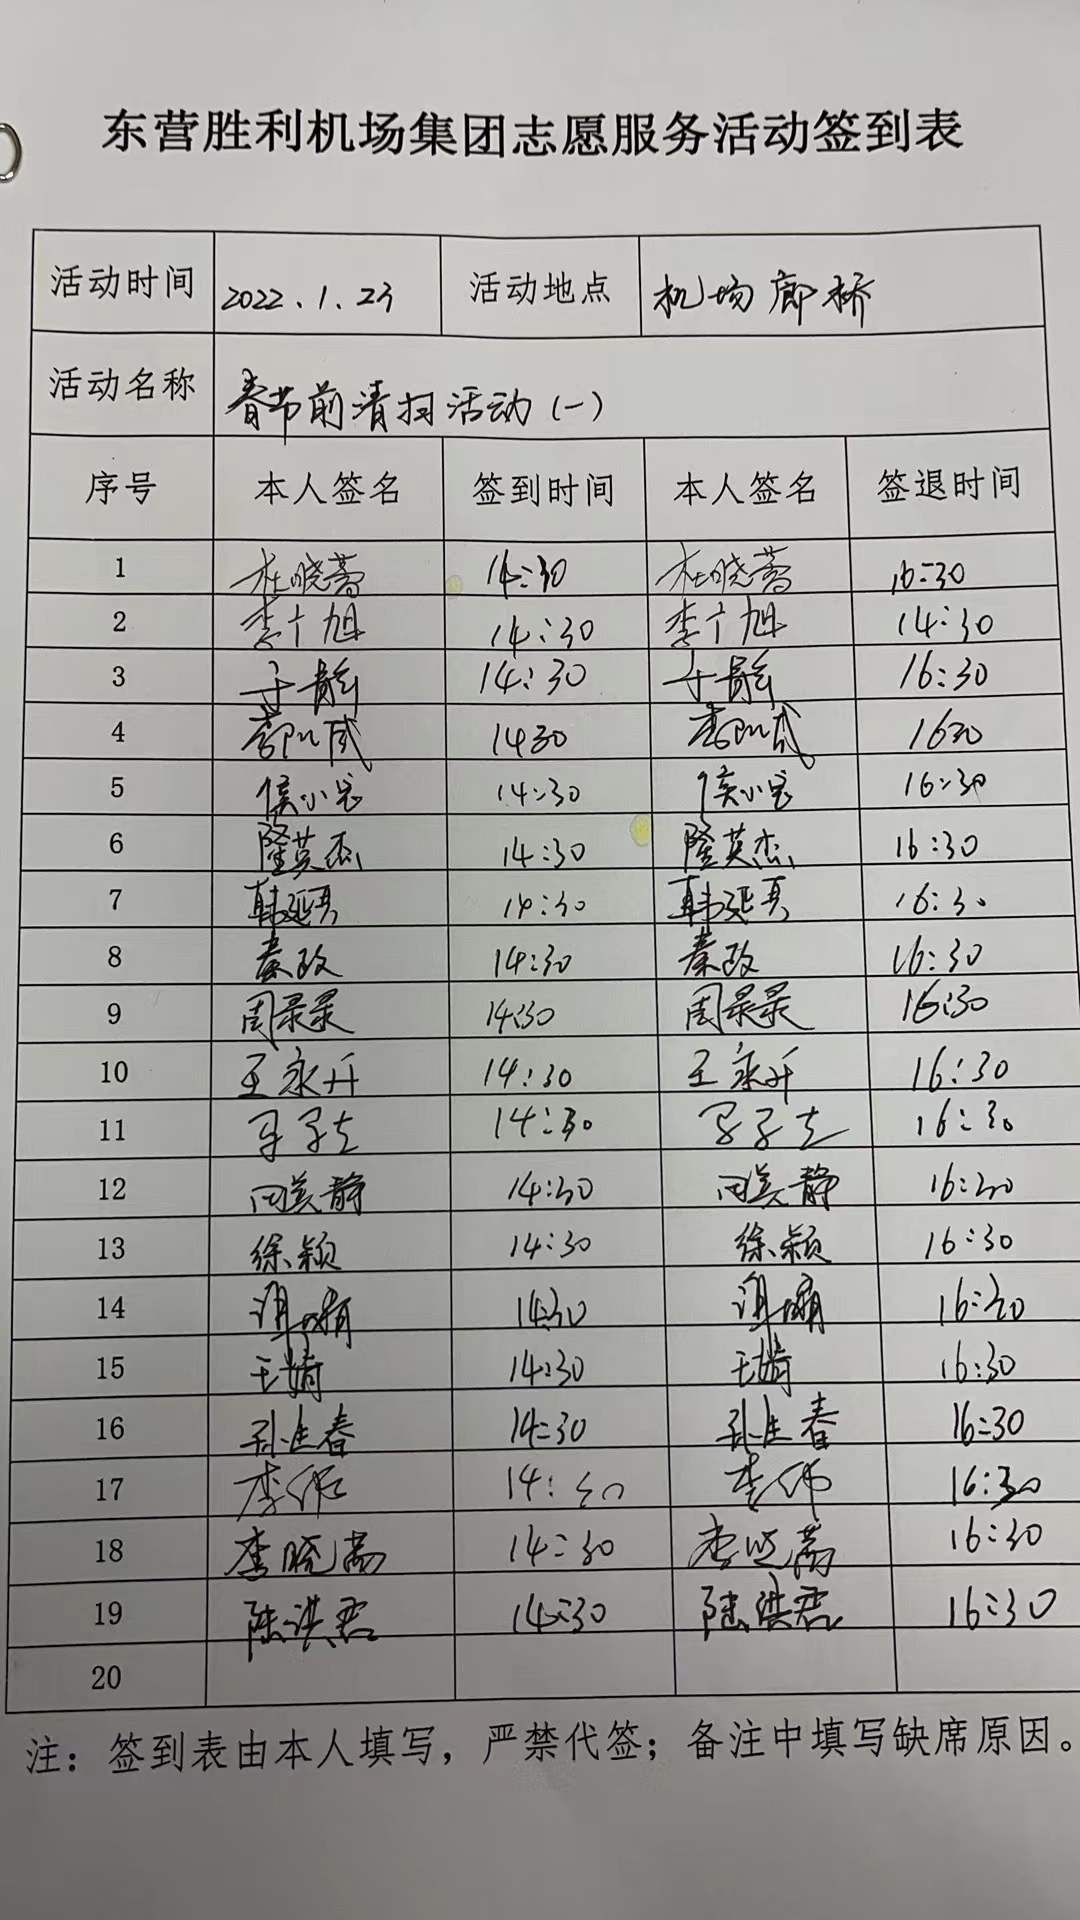 东营胜利机场集团志愿服务活动签到表
活动时间 2022.1.23 活动地点 机场廊桥
活动名称 春节前清扫活动(一)
序号 本人签名 签到时间 本人签名 签退时间
1 14:30 16:30
2 14:30 14:30
3 于静 14:30 于静 16:30
4 1430 1630
5 侯小宝 14:30 侯小宝 16:30
6 隆英杰 14:30 隆英杰 16:30
7 韩延真 14:30 韩延真 16:30
8 秦政 14:30 秦政 16:30
9 周录录 14:30 周录录 16:30
10 王永升 14:30 王永升 16:30
11 14:30 16:30
12 田美静 14:30 田美静 16:30
13 徐颖 14:30 徐颖 16:30
14 14:30 16:30
15 王婧 14:30 王婧 16:30
16 孙进春 14:30 孙进春 16:30
17 李伟 14:30 李伟 16:30
18 14:30 16:30
19 陆洪君 14:30 陆洪君 16:30
20
注：签到表由本人填写，严禁代签；备注中填写缺席原因。